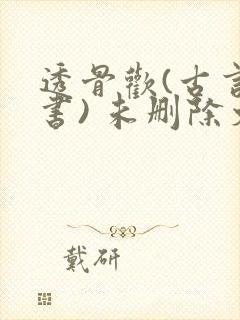 透骨歡(古言
書)未删除
戴研